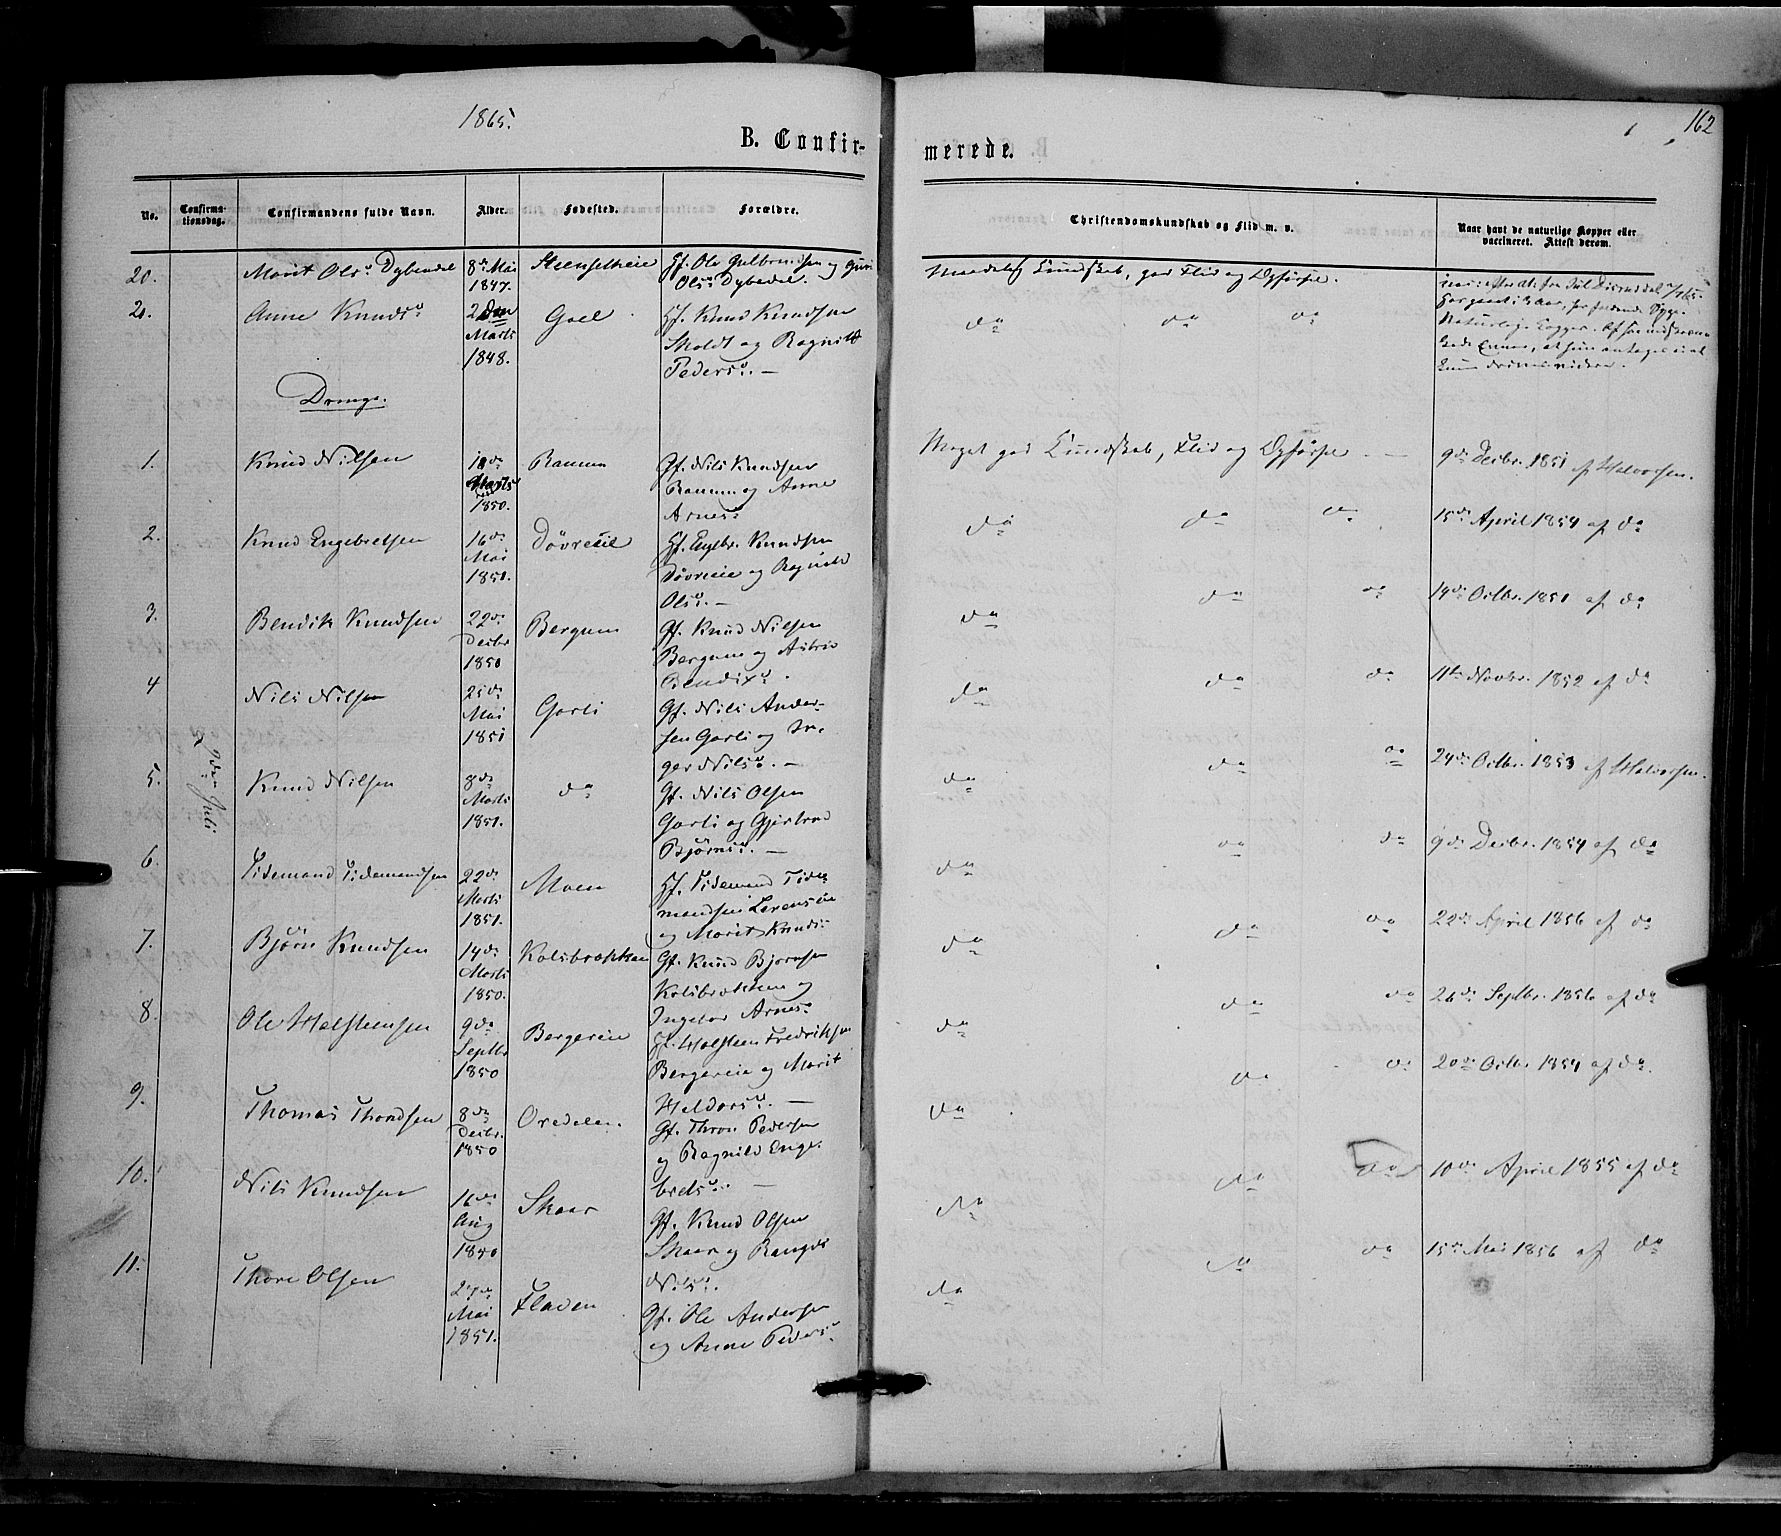 1865.
162
B. Confir-
merede.
No.
Confirma-
tionsdag.
Confirmandens fulde Navn.
Alder.
Fødested.
Forældre.
Christendomskundskab og Flid m. v.
Naar havt de naturlige Kopper eller
vaccineret. Attest derom.
20.
Marit Olsd. Dybedal
8de Mai
1847.
Gf. Ole Gulbrandsen og Guri
Olsd. Dybedal.
Kundskab, god Flid og Opførsel.
21.
Anne Knudsd.
2den
Marts
1848.
Goel
Hf. Knud Knudsen
Skoldt og Ragnild
Pedersd. —
do do do
Drenge.
5 9de Juli
1.
Knud Nilsen
18de
Marts
1850.
Ranum
Gf. Nils Knudsen
Ranum og Anne
Arnesd.
Meget god Kundskab, Flid og Opførsel —
9de Decbr. 1851 af Halvorsen.
2.
Knud Engebretsen
16de
Mai
1851.
Døvreeie
Hf. Engebr. Knudsen
Døvreeie og Ragnild
Olsd. —
do do do
15de April 1854 af do
3.
Bendik Knudsen
22de
Decbr
1850
Bergum
Gf. Knud Nilsen
Bergum og Astrid
Bendixd.
do do do
14de Octbr. 1851 af do
4
Nils Nilsen
25de
Mai
1851
Garli
Gf. Nils Ander-
sen Garli og In-
ger Nilsd. —
do do do
11te Novbr. 1852 af do
5.
Knud Nilsen
8de
Marts
1851.
do
Gf. Nils Olsen
Garli og Gjertrud
Bjørnsd. —
do do do
24de Octbr. 1853 af Halvorsen.
6.
Tidemand Tidemandsen
22de
Marts
1851.
Moen
Hf. Tidemand Tide-
mandsen
og Marit Knudsd.
do do do
9de Decbr. 1854 af do
7.
Bjørn Knudsen
14de
Marts
1850.
Kolsbrækken
Gf. Knud Bjørnsen
Kolsbrækken og
Ingebor Arnesd.
do do do
22de April 1856 af do
8.
Ole Halstensen
9de
Septbr
1850
Bergereie
Hf. Halsteen Fredriksen
Bergereie og Marit
Haldorsd. —
do do do
26de Septbr. 1856 af do
9.
Thomas Throndsen
8de
Decbr.
1850
Oredalen.
Gf. Thron Pedersen
og Ragnild Enge-
bretsd. —
do do do
20de Octbr. 1854 af do.
10.
Nils Knudsen
16de
Aug
1850
Skaar
Gf. Knud Olsen
Skaar og Rangdi
Nilsd.
do do do
10de April 1855 af do
11.
Thore Olsen
27de
Mai
1851.
Fladen
Gf. Ole Andersen
og Anne Pedersd.
do do do
15de Mai 1856 af do